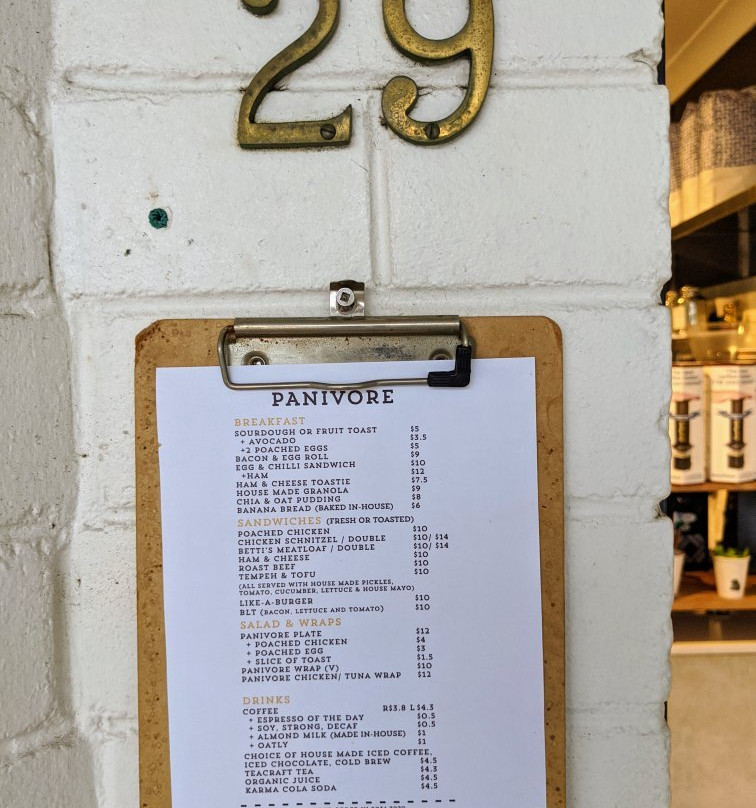 29
PANIVORE
BREAKFAST
SOURDOUGH OR FRUIT TOAST $5
+ AVOCADO $3.5
+2 POACHED EGGS $5
BACON & EGG ROLL $9
EGG & CHILLI SANDWICH $10
+HAM $12
HAM & CHEESE TOASTIE $7.5
HOUSE MADE GRANOLA $9
CHIA & OAT PUDDING $8
BANANA BREAD (BAKED IN-HOUSE) $6
SANDWICHES (FRESH OR TOASTED)
POACHED CHICKEN $10
CHICKEN SCHNITZEL / DOUBLE $10/ $14
BETTI'S MEATLOAF / DOUBLE $10/ $14
HAM & CHEESE $10
ROAST BEEF $10
TEMPEH & TOFU $10
(ALL SERVED WITH HOUSE MADE PICKLES,
TOMATO, CUCUMBER, LETTUCE & HOUSE MAYO)
LIKE-A-BURGER $10
BLT (BACON, LETTUCE AND TOMATO) $10
SALAD & WRAPS
PANIVORE PLATE $12
+ POACHED CHICKEN $4
+ POACHED EGG $3
+ SLICE OF TOAST $1.5
PANIVORE WRAP (V) $10
PANIVORE CHICKEN/ TUNA WRAP $12
DRINKS
COFFEE R$3.8 L$4.3
+ ESPRESSO OF THE DAY $0.5
+ SOY, STRONG, DECAF $0.5
+ ALMOND MILK (MADE IN-HOUSE) $1
+ OATLY $1
CHOICE OF HOUSE MADE ICED COFFEE,
ICED CHOCOLATE, COLD BREW $4.5
TEACRAFT TEA $4.3
ORGANIC JUICE $4.5
KARMA COLA SODA $4.5